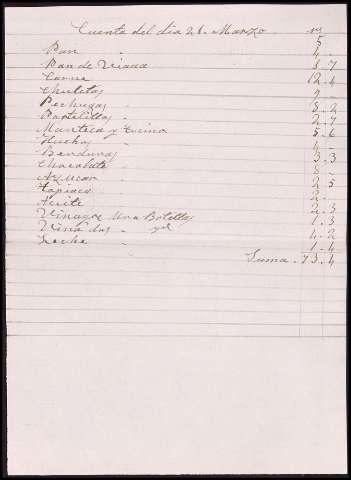 Cuenta del dia 26. Marzo. rs
Pan . 5
Pan de Viana 4 -
Carne . 3.7
Chuletas 12.4
Pechugas 9
Pastelillos . 3.2
Manteca y tocino 2.7
Huebos . 5.6
Berduras . 4 -
Chocolate . 3.3
Azucar . 8 -
Tapioca . 2.5
Aceite . 2 -
Vinagre Una Botella 2.3
Vino dos . 1.3
Leche . 4.2
1.4
Suma . 73.4